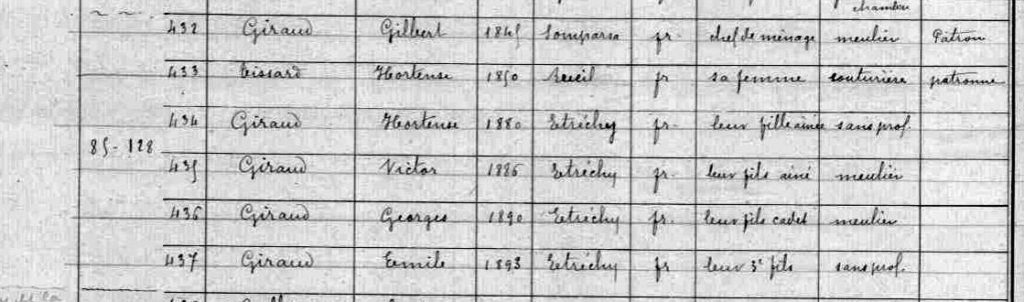 chambre
432 Giraud Gilbert 1845 fr. chef de ménage meulier Patron
433 Tissard Hortense 1850 fr sa femme couturière patronne
434 Giraud Hortense 1880 Etréchy fr. leur fille ainée sans prof.
85-128
435 Giraud Victor 1886 Etréchy fr. leur fils ainé meulier
436 Giraud Georges 1890 Etréchy fr. leur fils cadet meulier
437 Giraud Emile 1893 Etréchy fr leur 3e fils sans prof.